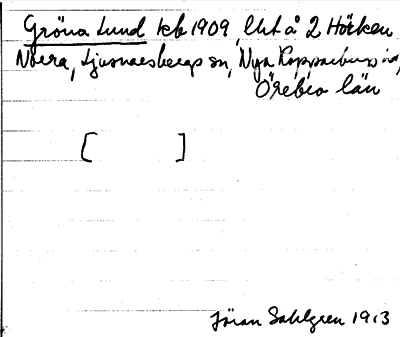 Gröna Lund kb 1909, lht å 2 Hörken
Norra, Ljusnarsbergs sn, Nya Kopparbergs hd,
Örebro län
[ ]
Jöran Sahlgren 1913